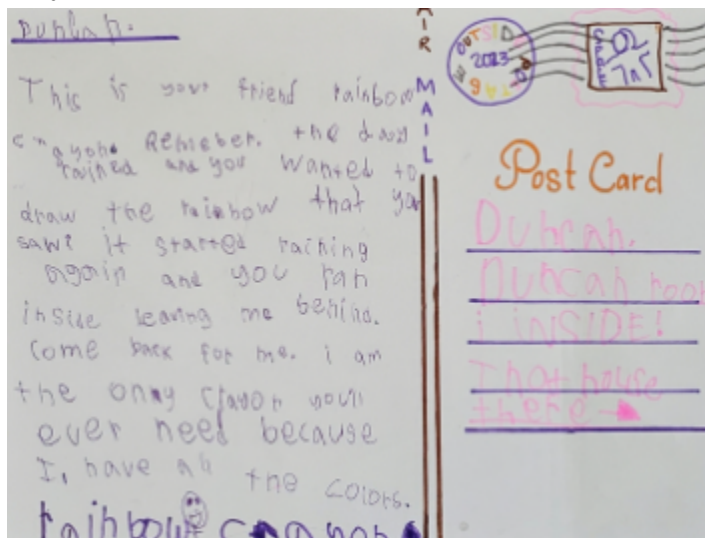 Duncan.
This is your friend rainbow
crayon. Remeber. the day
rained and you wanted to
draw the rainbow that you
saw? it started raining
again and you ran
inside leaving me behind.
Come back for me. i am
the only crayon you'll
ever need because
I, have all the colors.
rainbow crayon
AIR MAIL
OUTSIDE
2023
Post Card
Duncan.
Duncan room
i INSIDE!
That house
there →